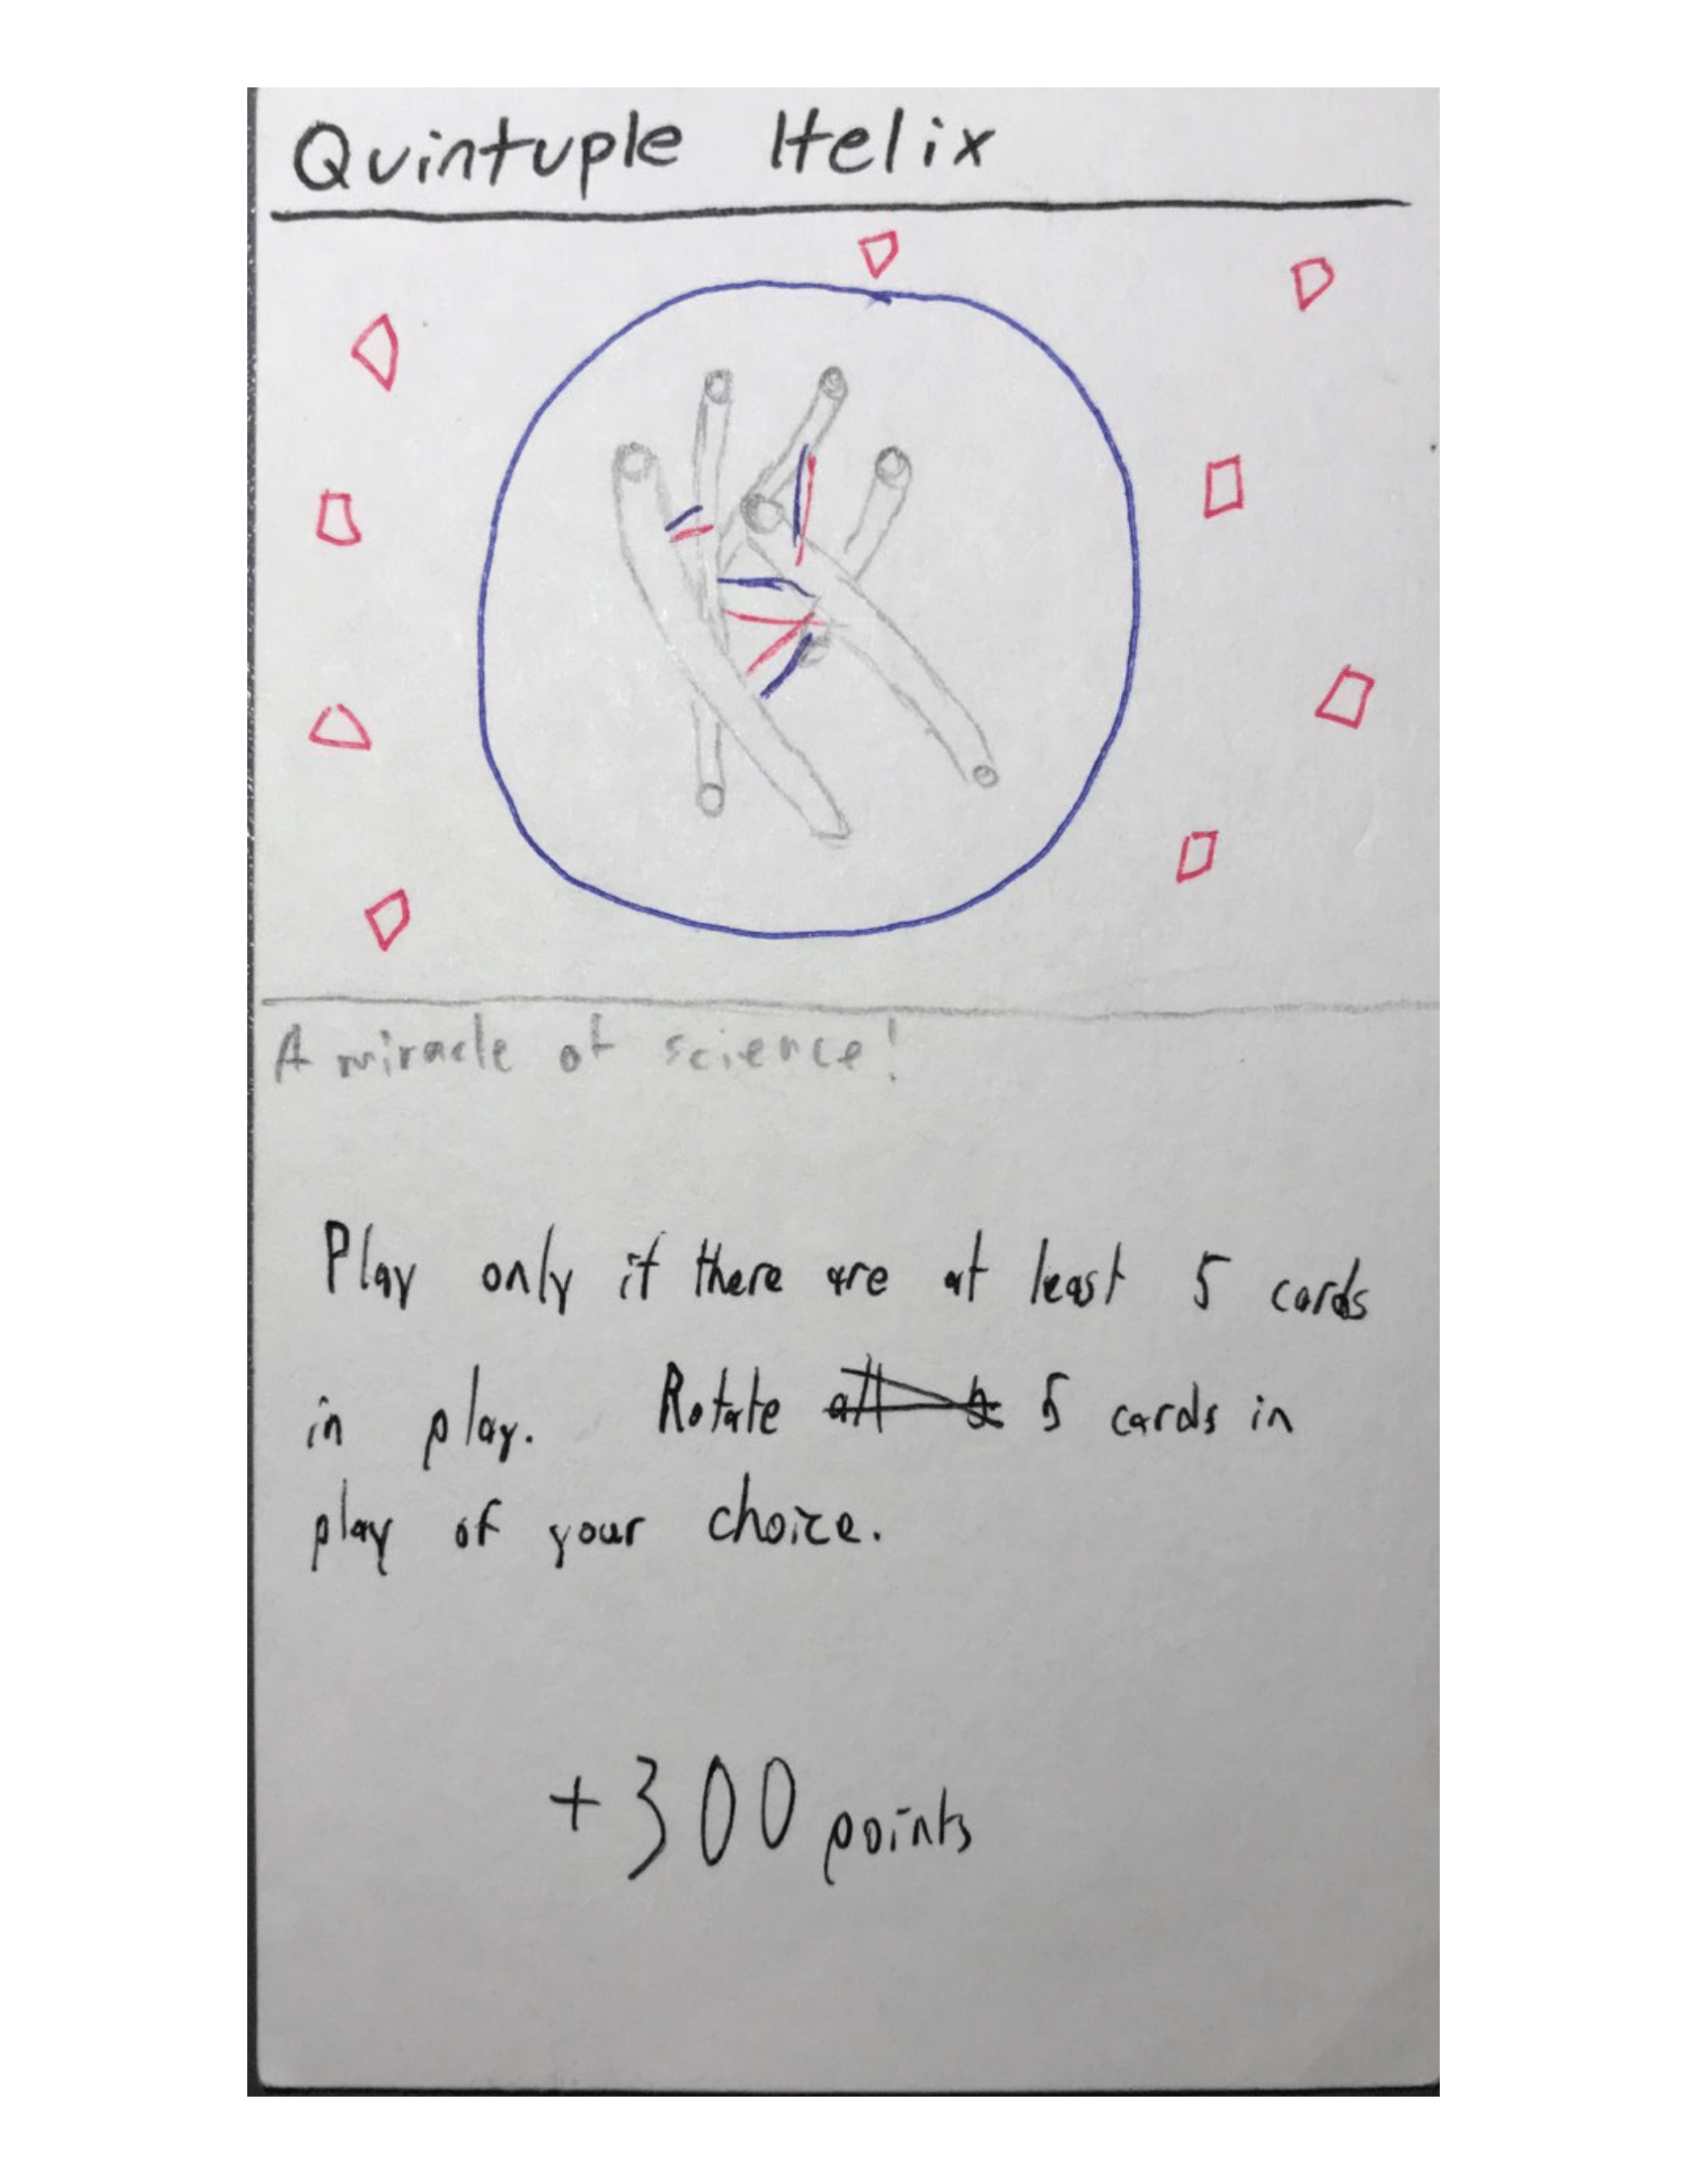 Quintuple Helix
A miracle of science!
Play only if there are at least 5 cards
in play. Rotate all 5 cards in
play of your choice.
+300 points